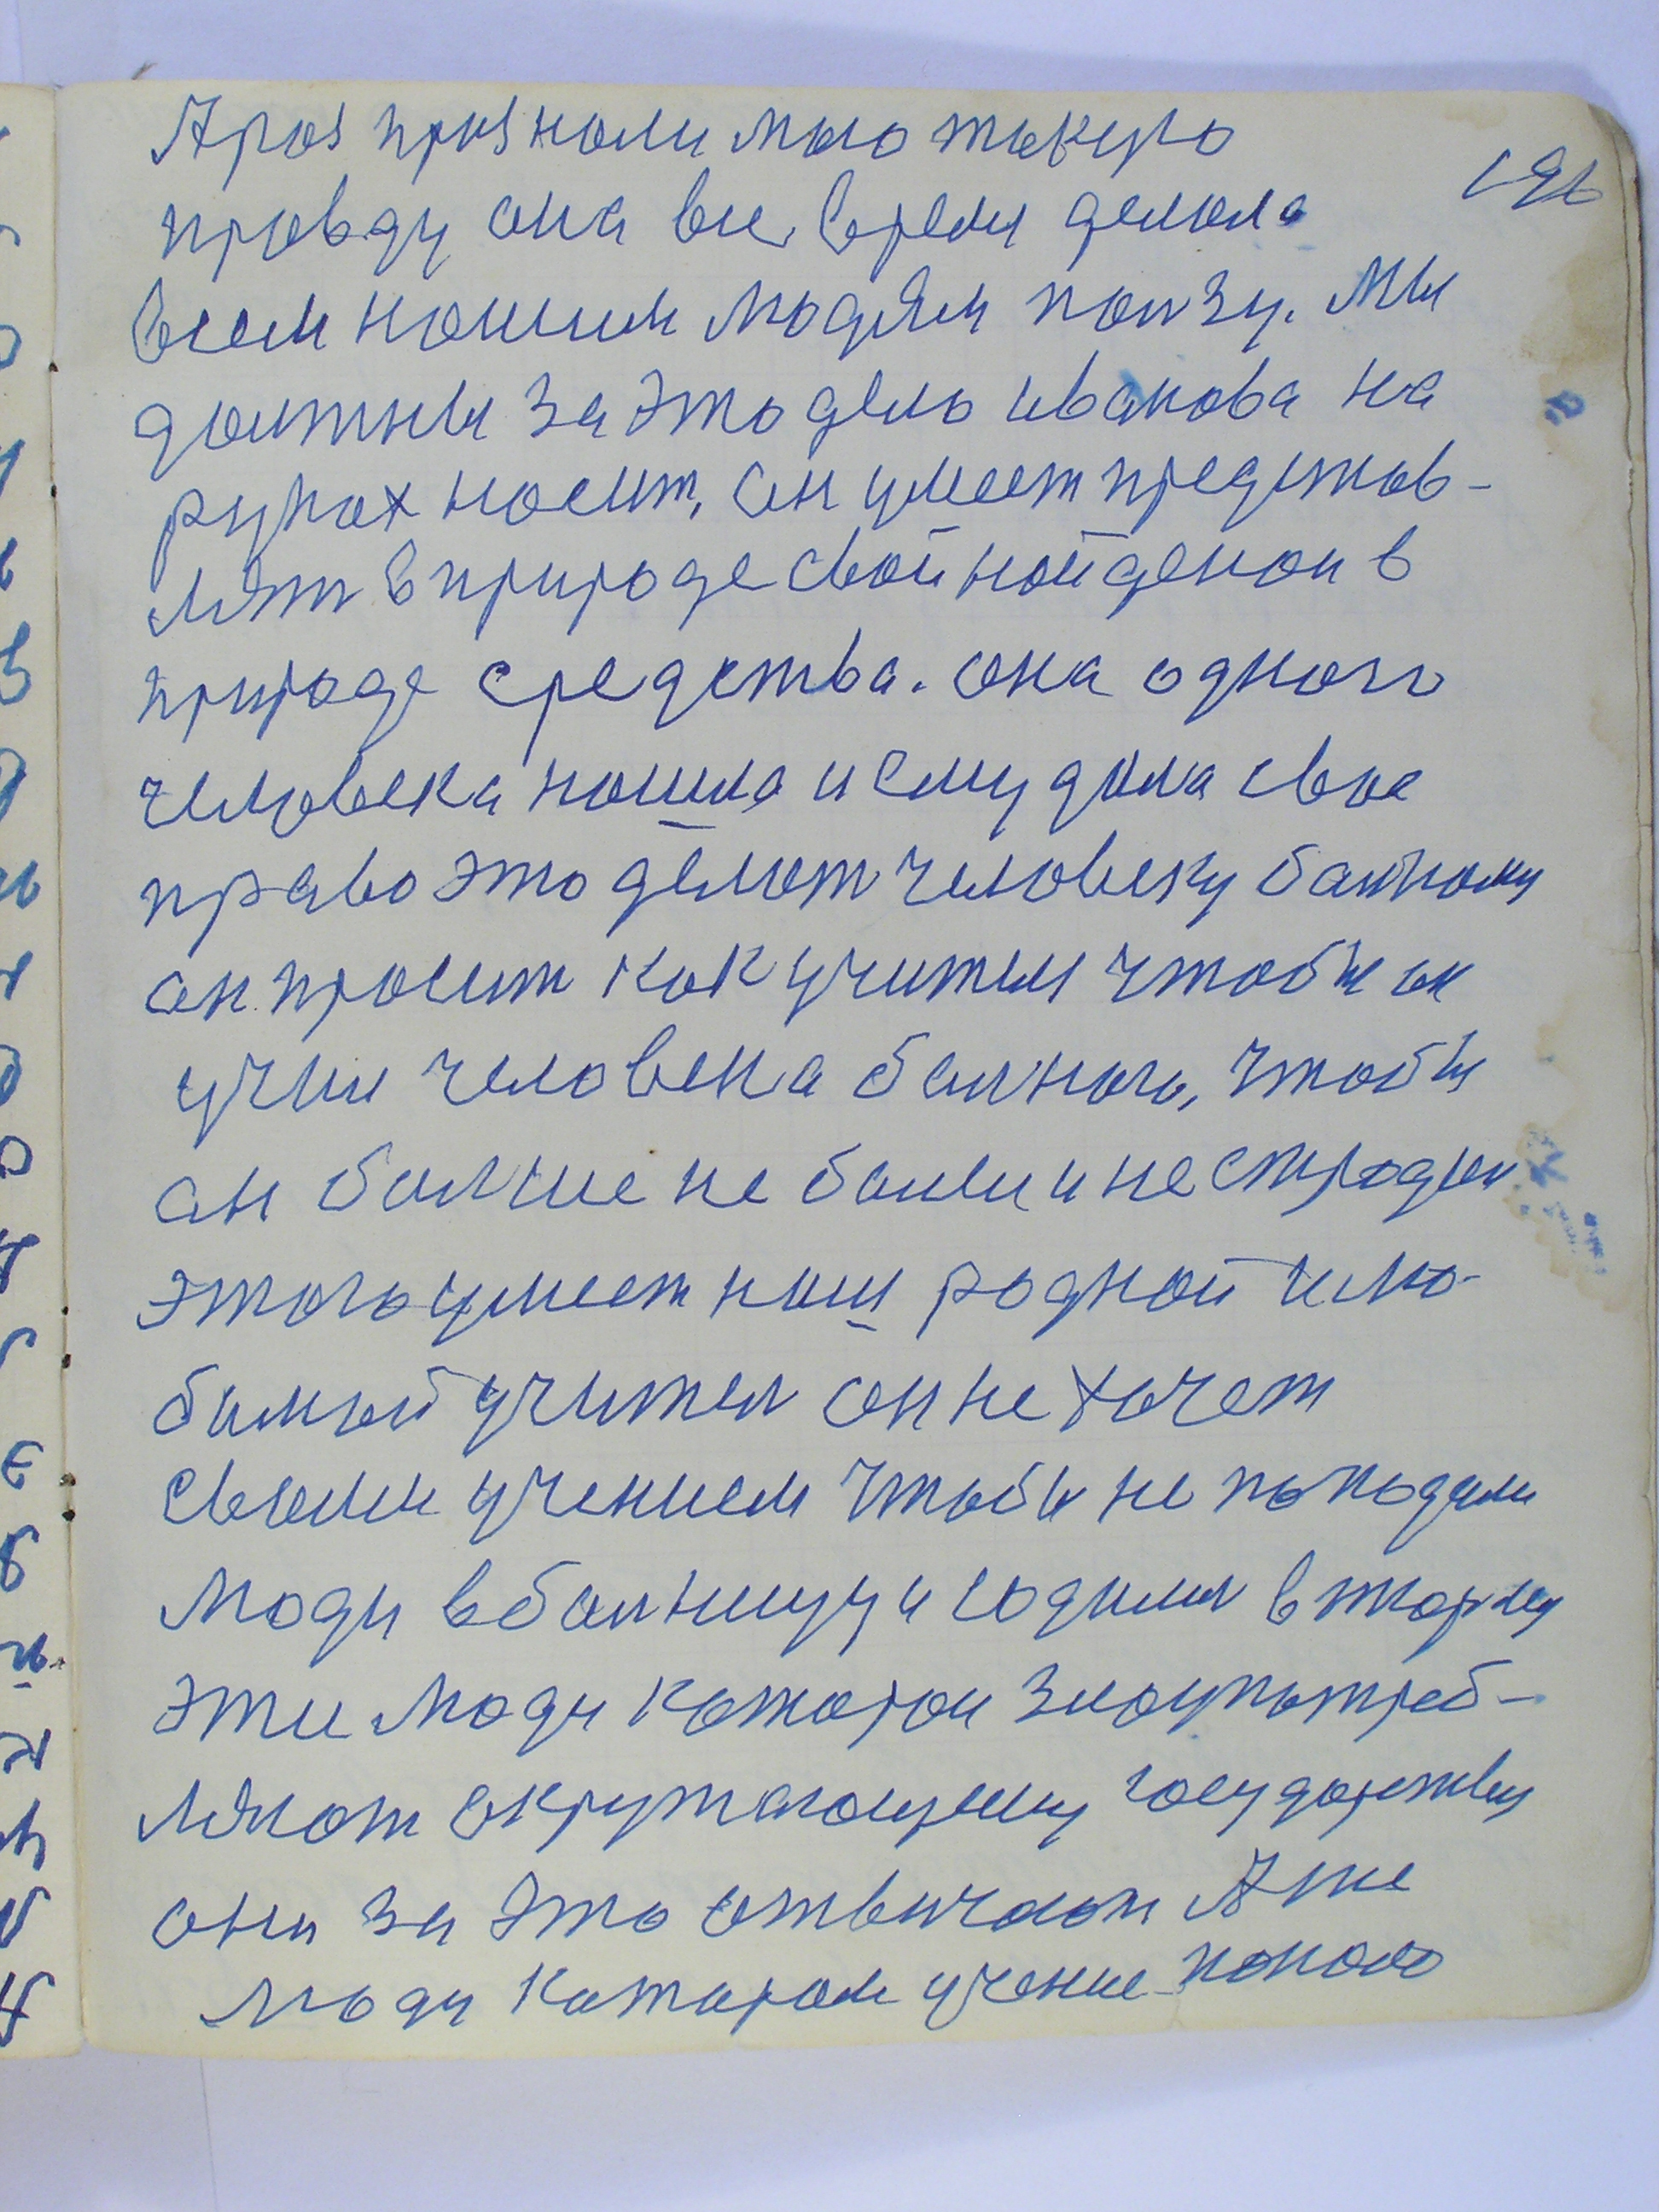 Араз признали мою такую
196
правду она все время делала
всем нашим людям ползу. Мы
должны за это дело иванова на
руках носит, он умеет представ-
лят в природе свои найденои в
природе средства. она одного
человека нашла и ему дала свое
право это делат человеку балному
он просит как учител чтобы он
учил человека балного, чтобы
он балше не болел и не страдал
этого умеет наш родной и лю-
бимый учител он не хочет
своим учением чтобы не попадали
люди в балницу и садилис в тюрму
эти люди каторои злоупотреб-
ляют окружающему государству
они за это отвичают А те
люди каторым учение попало